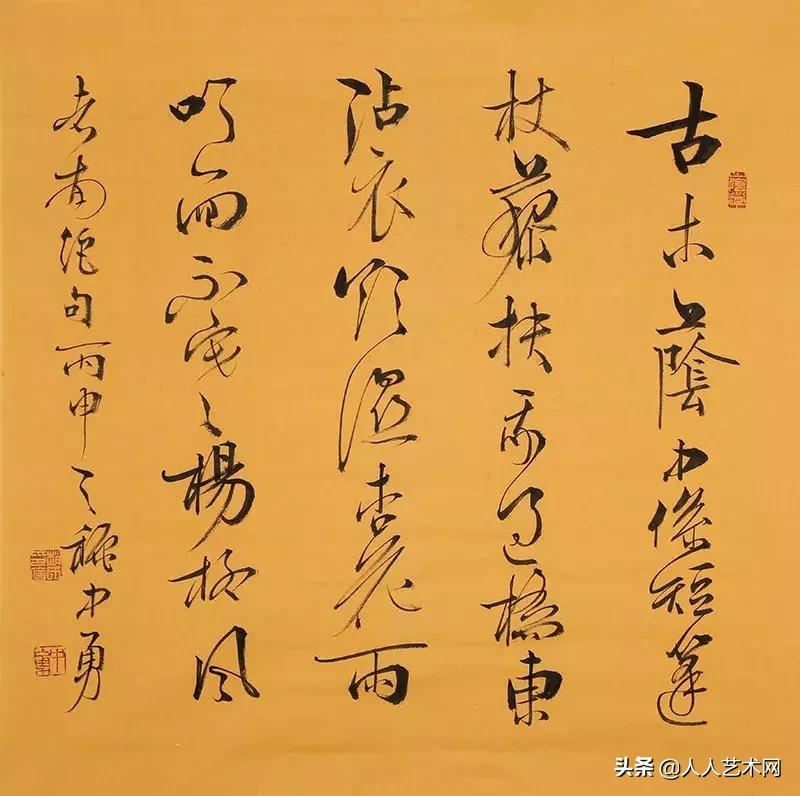 古木蔭中係短篷
杖藜扶我過橋東
沾衣欲濕杏花雨
吹面不寒楊柳風
志南絕句丙申之穐中勇
头条 @人人艺术网